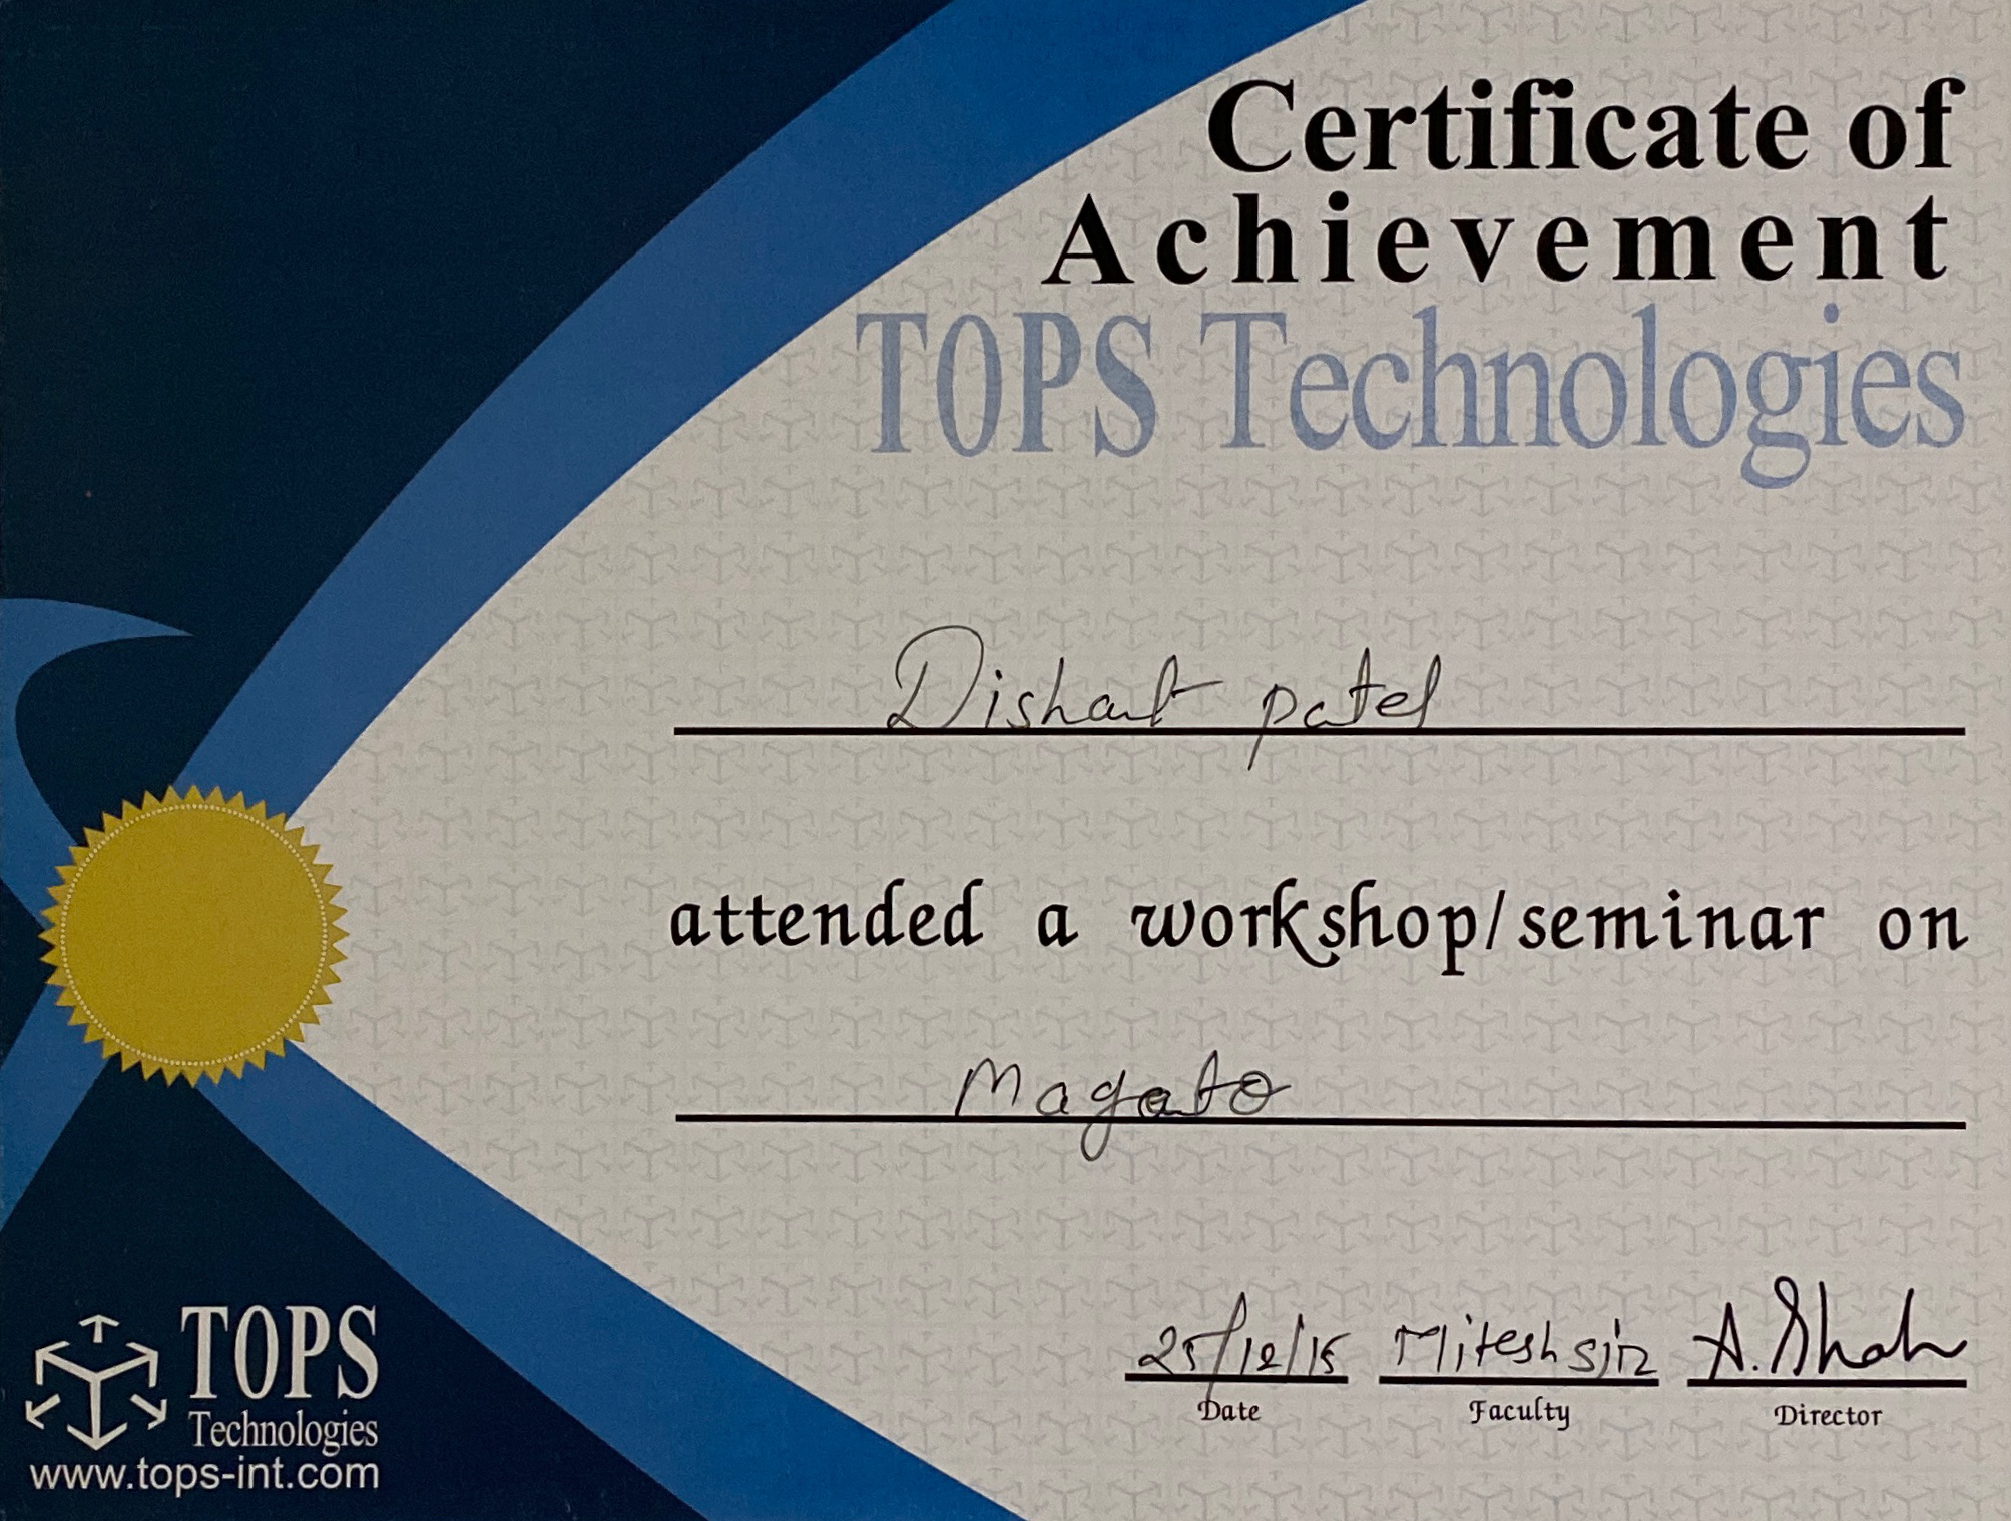 Certificate of
Achievement
TOPS Technologies
Dishant patel
attended a workshop/seminar on
Magato
25/12/15 Miteshsir A. Shah
Date Faculty Director
TOPS
Technologies
www.tops-int.com